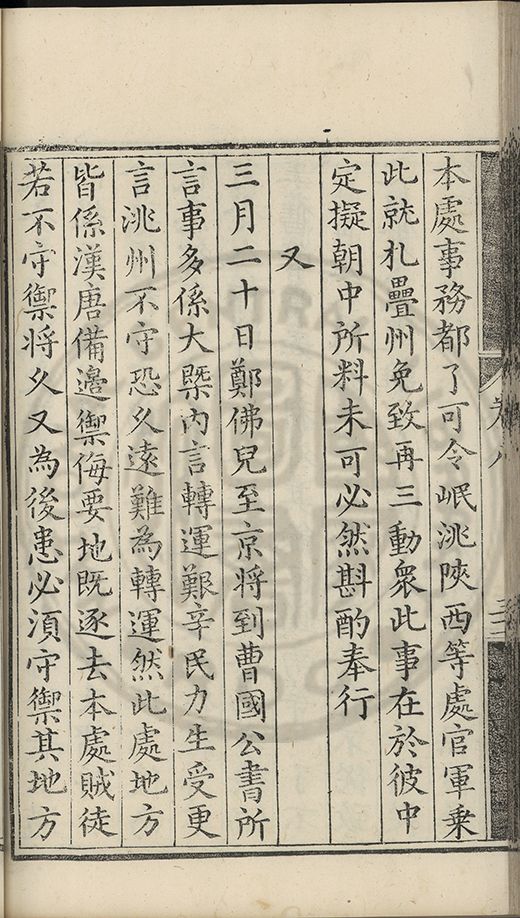 本處事務都了可令岷洮陝西等處官軍乗
此就札疊州免致再三動衆此事在於彼中
定擬朝中所料未可必然斟酌奉行
又
三月二十日鄭佛兒至京將到曹國公書所
言事多係大槩内言轉運艱辛民力生受更
言洮州不守恐乆遠難為轉運然此處地方
皆係漢唐備邉禦侮要地既逐去本處賊徒
若不守禦将乆又為後患必須守禦其地方